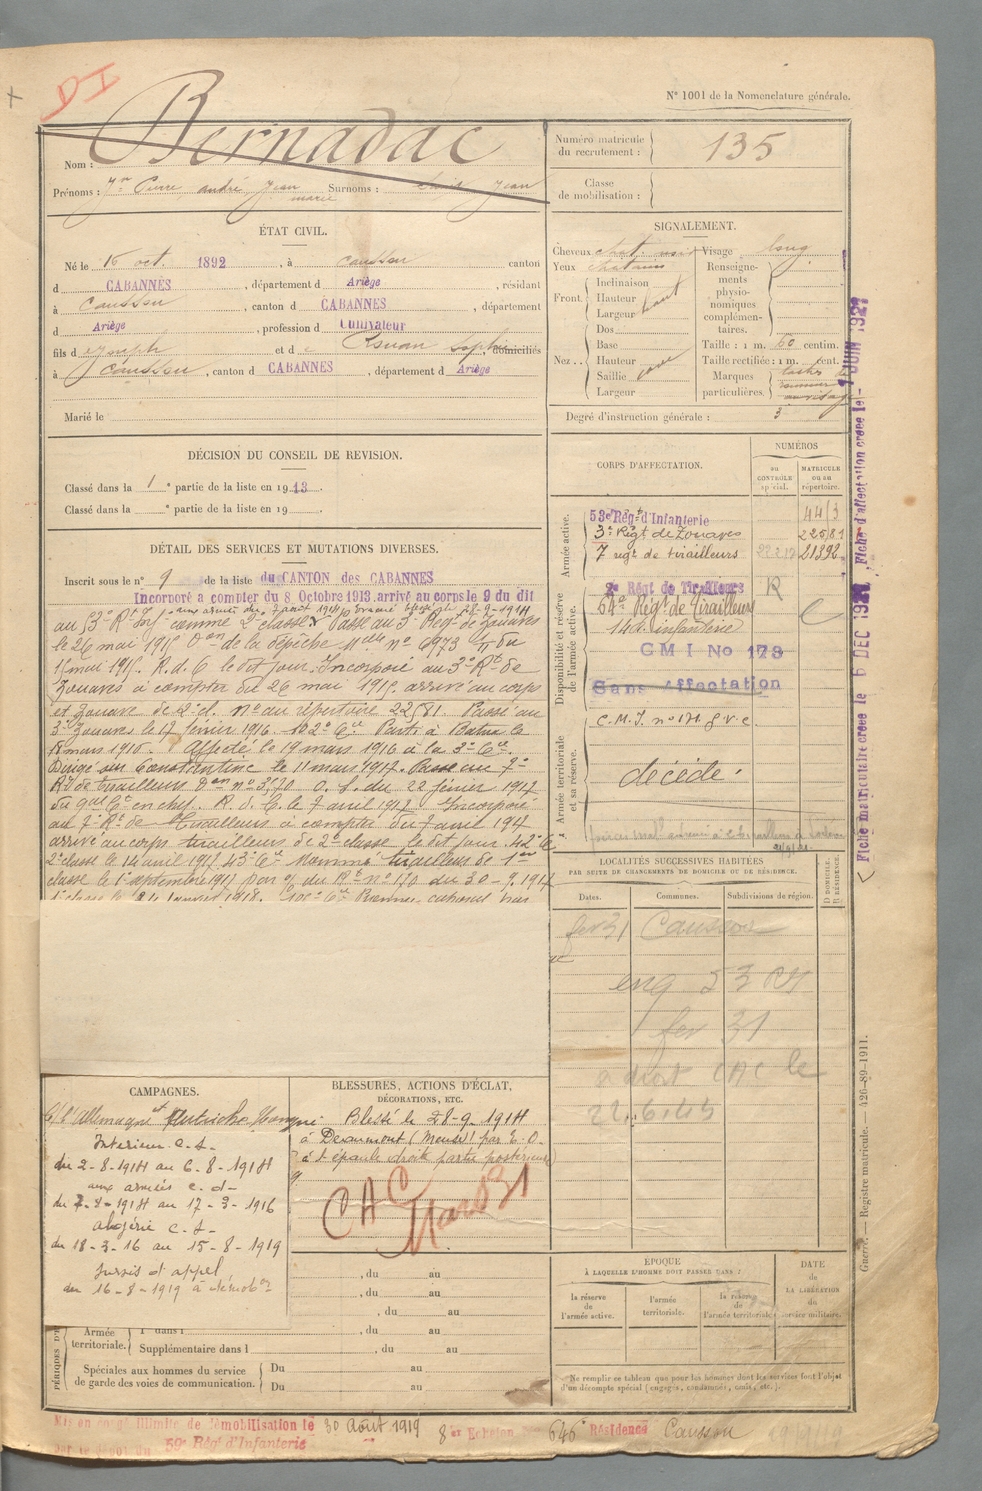 DI
N° 1001 de la Nomenclature générale.
Nom : Bernadac
Prénoms : Jn Pierre andré Jean marie Surnoms : Jean
Numéro matricule du recrutement : 135
Classe de mobilisation :
ÉTAT CIVIL.
Né le 16 oct. 1892, à Caussou canton
d CABANNES, département d Ariège, résidant
à Caussou, canton d CABANNES, département
d Ariège, profession d Cultivateur
fils d Joseph et d e Sophie, domiciliés
à Caussou, canton d CABANNES, département d Ariège
Marié le
SIGNALEMENT.
Cheveux chat. Visage long
Yeux chatains
Front : Inclinaison
Hauteur haut
Largeur
Nez : Dos
Base
Hauteur
Saillie
Largeur
Renseignements physionomiques complémentaires.
Taille : 1 m. 60 centim.
Taille rectifiée : 1 m. cent.
Marques particulières. taches de
au visage
Degré d'instruction générale : 3
DÉCISION DU CONSEIL DE REVISION.
Classé dans la 1e partie de la liste en 1913.
Classé dans la e partie de la liste en 19 .
CORPS D'AFFECTATION.
NUMÉROS
au CONTRÔLE spécial.
MATRICULE ou au répertoire.
Armée active.
53e Régt d'Infanterie 4413
3e Régt de Zouaves 22581
7 regt de tirailleurs 21392
Disponibilité et réserve de l'armée active.
2e Régt de Tirailleurs R
64e Régt de Tirailleurs
14e infanterie
C M I No 178
Sans affectation
Armée territoriale et sa réserve.
C.M.I. n° 171 g.v.c.
décédé.
DÉTAIL DES SERVICES ET MUTATIONS DIVERSES.
Inscrit sous le n° 9 de la liste du CANTON des CABANNES
Incorporé à compter du 8 Octobre 1913. arrivé au corps le 9 du dit
aux armées du 7 aout 1914 Evacué blessé le 28-9-1914
au 53e Rt Inf comme 2e classe. Passé au 3e Régt de Zouaves
le 26 mai 1915 Don de la dépêche Mlle n° 6973 1/11 du
15 mai 1915. R.d.C le dit jour. Incorporé au 3e Rt de
Zouaves à compter du 26 mai 1915. arrivé au corps
et Zouave de 2e cl. n° au répertoire 22581. Passé au
3e Zouaves le 17 février 1916. Parti à Batna le
18 mars 1916. Affecté le 19 mars 1916 à la 3e Cie
Dirigé sur Constantine le 11 mars 1917. Passé au 7e
Rt de tirailleurs Don n° 3,70 O.S. du 22 février 1917
du gal Ct en chef. R.d.C. le 7 avril 1917. Incorporé
au 7e Rt de Tirailleurs à compter du 7 avril 1917
arrivé au corps tirailleurs de 2e classe le dit jour. 42e Cie
2e classe le 14 avril 1917 43e Cie Nommé tirailleur de 1re
classe le 1er septembre 1917 par o/ du Rt n° 170 du 30-9-1917
LOCALITÉS SUCCESSIVES HABITÉES
PAR SUITE DE CHANGEMENTS DE DOMICILE OU DE RÉSIDENCE.
Dates. Communes. Subdivisions de région. D DOMICILE. R RÉSIDENCE.
fev 31 Caussou
eng 53 RI
fev 31
a droit CAC le
22.6.45
CAMPAGNES.
C/ l'Allemagne et Autriche Hongrie
Intérieur C.S.
du 2-8-1914 au 6-8-1914
aux armées C.D.
du 7-8-1914 au 17-3-1916
algérie C.S.
du 18-3-16 au 15-8-1919
sursis d'appel
du 16-8-1919 à démobon
BLESSURES, ACTIONS D'ÉCLAT,
DÉCORATIONS, ETC.
Blessé le 28-9-1914
à Beaumont (Meuse) par E.O.
à l'épaule droite partie postérieure
CAC
Mars 31
, du au
, du au
, du au
PÉRIODES D'
Armée territoriale. 1e dans l , du au
Supplémentaire dans l , du au
Spéciales aux hommes du service de garde des voies de communication. Du au
Du au
ÉPOQUE
À LAQUELLE L'HOMME DOIT PASSER DANS :
la réserve de l'armée active.
l'armée territoriale.
la réserve de l'armée territoriale.
DATE de LA LIBÉRATION du service militaire.
Ne remplir ce tableau que pour les hommes dont les services font l'objet
d'un décompte spécial (engagés, condamnés, omis, etc.).
Mis en congé illimité de démobilisation le 30 Aout 1919 8er Echelon 646 Résidence Caussou
par le dépôt du 59e Régt d'Infanterie
Fiche matriculaire créée le 6 DEC 192 Fiche d'affectation créée le 1 JUIN 1927
Guerre. — Registre matricule. — 426-89-1911.